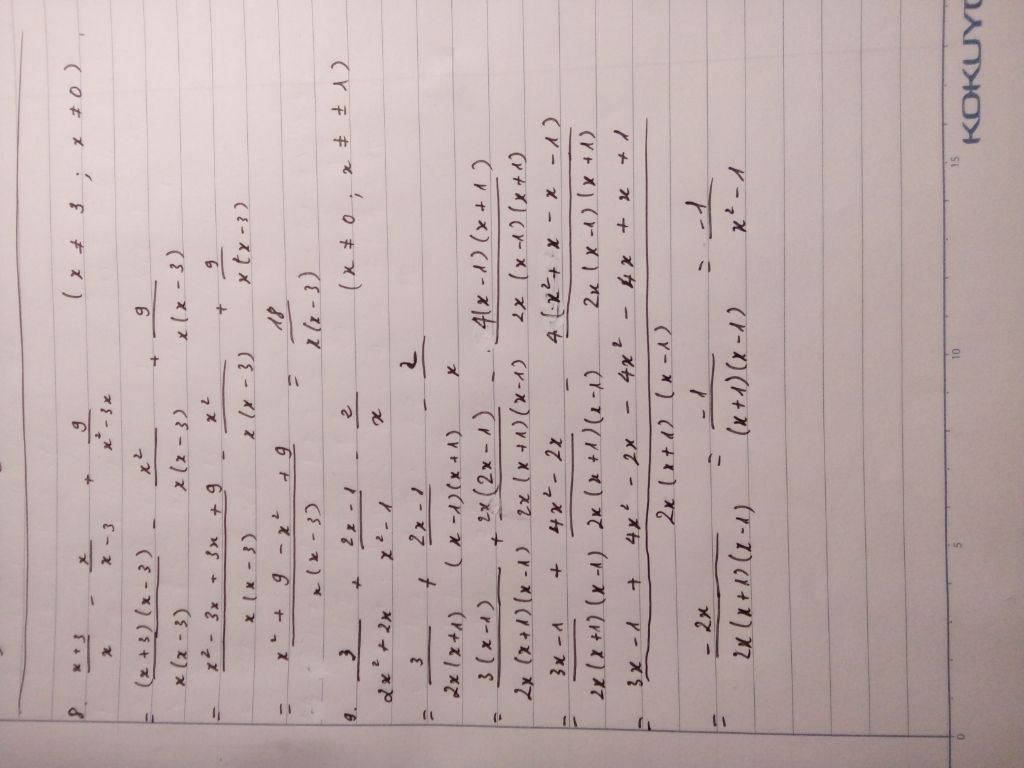 8. (x+3)/x - x/(x-3) + 9/(x²-3x) (x ≠ 3 ; x ≠ 0)
= (x+3)(x-3)/x(x-3) - x²/x(x-3) + 9/x(x-3)
= (x² - 3x + 3x + 9)/x(x-3) - x²/x(x-3) + 9/x(x-3)
= (x² + 9 - x² + 9)/x(x-3) = 18/x(x-3)
9. 3/(2x²+2x) + (2x-1)/(x²-1) - 2/x (x ≠ 0, x ≠ ± 1)
= 3/2x(x+1) + (2x-1)/(x-1)(x+1) - 2/x
= 3(x-1)/2x(x+1)(x-1) + 2x(2x-1)/2x(x+1)(x-1) - 4(x-1)(x+1)/2x(x-1)(x+1)
= (3x-1)/2x(x+1)(x-1) + (4x²-2x)/2x(x+1)(x-1) - 4(x²+x-x-1)/2x(x-1)(x+1)
= (3x-1 + 4x² - 2x - 4x² - 4x + x + 1)/2x(x+1)(x-1)
= -2x/2x(x+1)(x-1) = -1/(x+1)(x-1) = -1/(x²-1)
0 5 10 15
KOKUYO